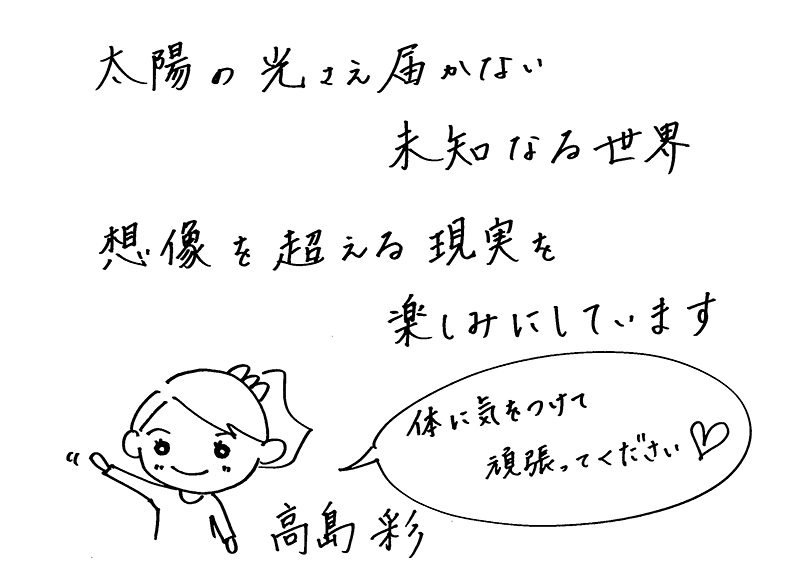 太陽の光さえ届かない
未知なる世界
想像を超える現実を
楽しみにしています
体に気をつけて
頑張ってください♡
高島彩